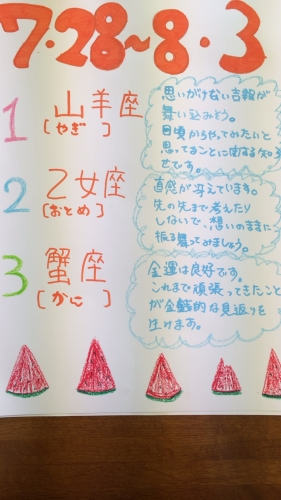 7・28〜8・3
1 山羊座
[やぎ]
思いがけない吉報が
舞い込みそう。
日頃からやってみたいと
思ってることに関する知ら
せです。
2 乙女座
[おとめ]
直感が冴えています。
先の先まで考えたり
しないで、想いのままに
振る舞ってみましょう。
3 蟹座
[かに]
金運は良好です。
これまで頑張ってきたこと
が金銭的な見返りを
生けます。